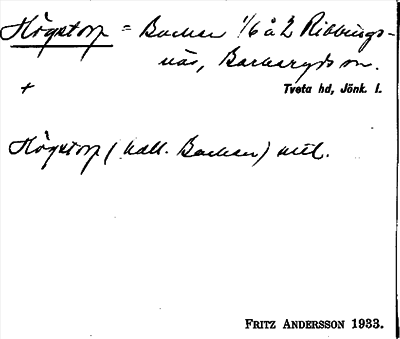 Högstorp = Backen 1/6 å 2 Ribbings-
näs, Barkeryds sn.
+ Tveta hd, Jönk. l.
Högstorp (kall. Backen) utl.
FRITZ ANDERSSON 1933.